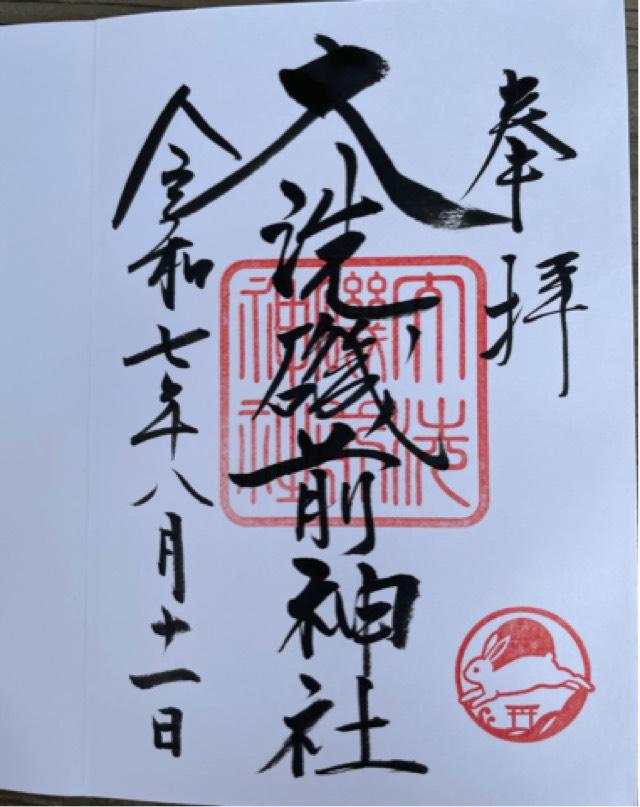 奉拝
大洗磯前神社
令和七年八月十一日
大洗
磯前
神社